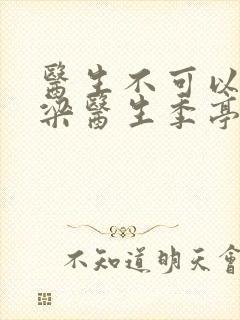 醫生不可以
梁醫生季亭
不知道明天會